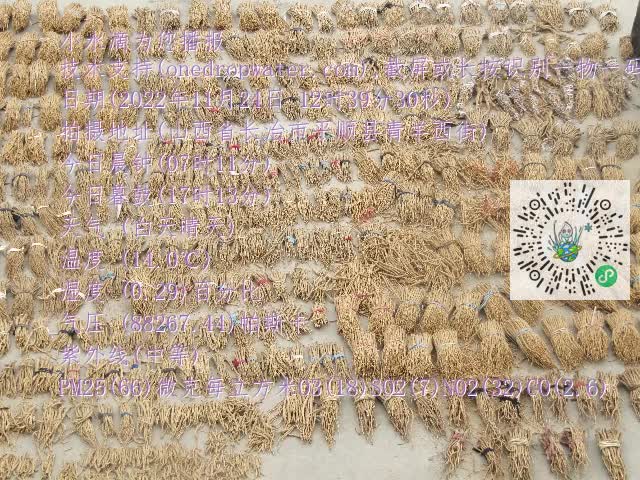 小水滴为您播报
技术支持(onedropwater.com) 截屏或长按识别一物一码
日期(2022年11月21日 12时39分30秒)
拍摄地址(山西省长治市平顺县青羊西街)
今日晨钟(07时11分)
今日暮鼓(17时13分)
天气 (白天晴天)
温度 (14.0℃)
湿度 (0.29)百分比
气压 (88267.44)帕斯卡
紫外线(中等)
PM25(66)微克每立方米O3(18)SO2(7)NO2(32)CO(2.6)